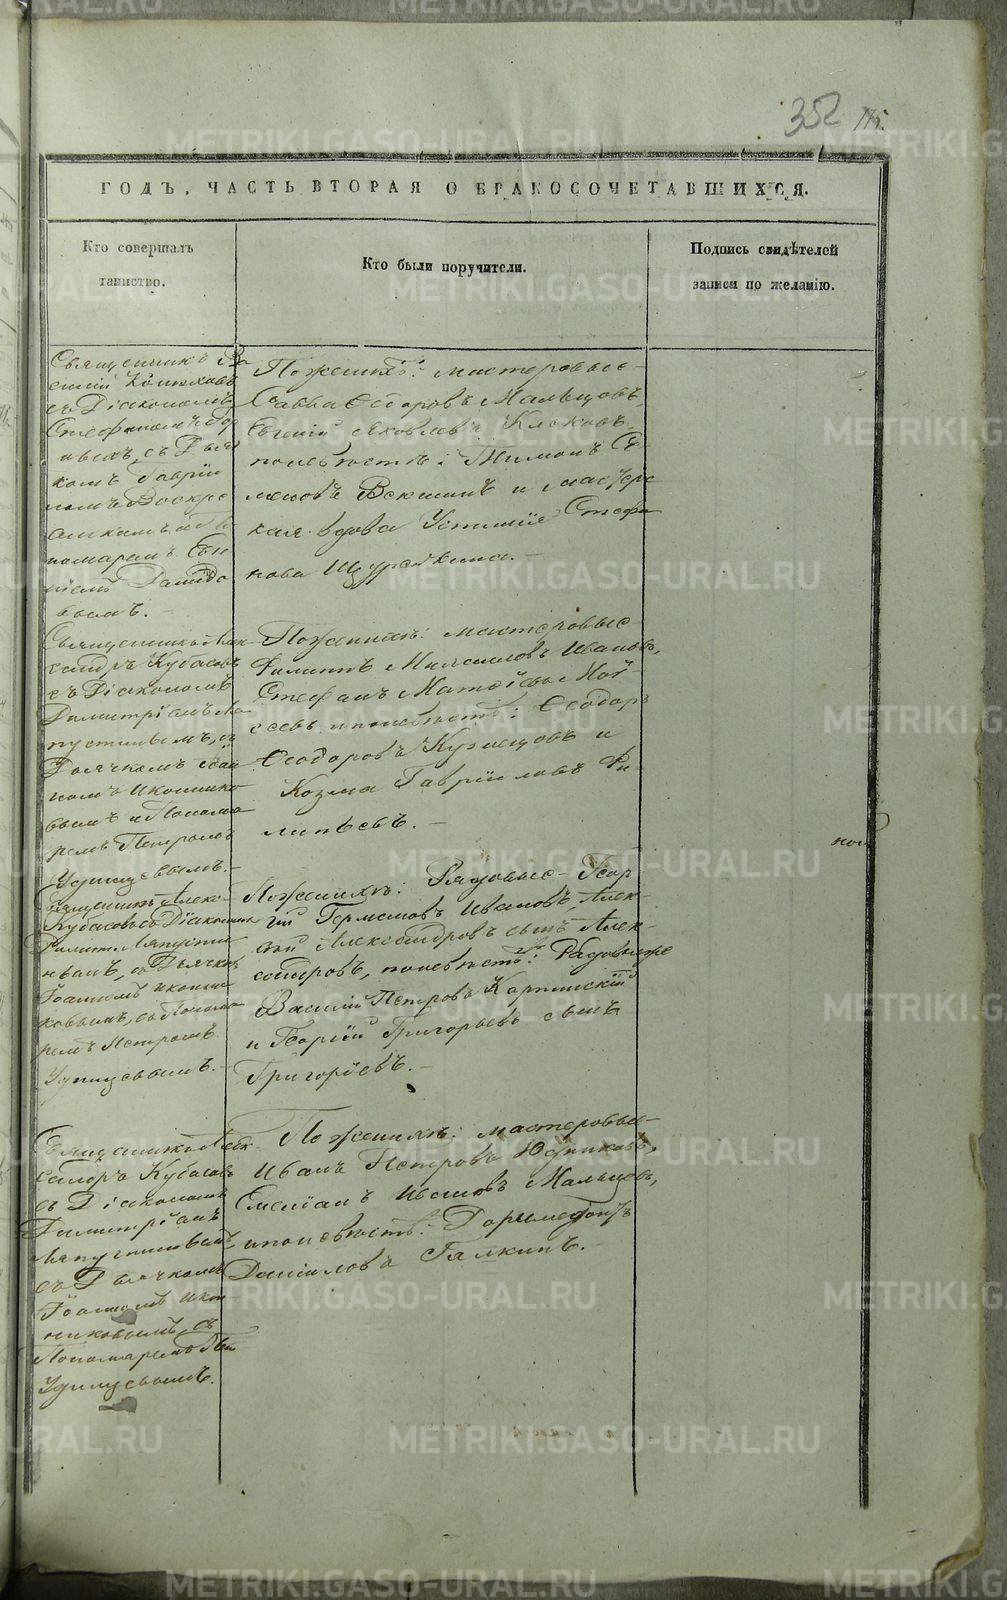 352 175.
ГОДЪ. ЧАСТЬ ВТОРАЯ О БРАКОСОЧЕТАВШИХСЯ.
Кто совершалъ таинство.
Кто были поручители.
Подпись свидѣтелей записи по желанію.
Священникъ Ва
силій
съ Діакономъ
Стефаномъ
съ Дьяч
комъ Гаврі
ломъ Воскре
номаремъ Ев
Давыдо
вымъ.
По женихѣ: мастеровые
Савва Ѳедоровъ Мальцовъ,
Евгеній Яковлевъ Клюковъ,
по невѣстѣ: Тимонъ Се
меновъ Векшинъ и мастерс
кая вдова Устинія Стефа
нова
Священникъ Алек
сандръ Кубасовъ
съ Діакономъ
Димитріемъ Ля
пустинымъ, съ
Дьячкомъ Іоан
номъ Иконнико
вымъ и Понома
ремъ Петромъ
Удинцевымъ.
По женихѣ: мастеровые
Филиппъ Михаиловъ Ивановъ,
Стефанъ Матѳіевъ Мои
сеевъ и по невѣстѣ: Ѳеодоръ
Ѳеодоровъ Кузнецовъ и
Козма Гавріиловъ Фи
липьевъ.
Священникъ Алек.
Кубасовъ съ Діакономъ
Димит. Ляпусти
нымъ, съ Дьячком
Іоанномъ Иконни
ковымъ, съ Понома
ремъ Петромъ
Удинцевымъ.
По женихѣ: Рядовые Геор
гій Гермогеновъ Ивановъ, Алек
сѣй Александровъ сынъ Алек
сандровъ, по невѣстѣ: Рядовые же
Василій Петровъ Карпинскій
и Георгій Григорьевъ сынъ
Григорьевъ.
Священникъ Алек
сандръ Кубасовъ
съ Діакономъ
Димитріемъ
Ляпустинымъ
съ Дьячкомъ
Іоанномъ Икон
никовымъ, съ
Пономаремъ Пет.
Удинцевымъ.
По женихѣ: мастеровые
Иванъ Петровъ
Емеліанъ Ивановъ Мальцовъ,
и по невѣстѣ: Доримедонтъ
Даніиловъ Галкинъ.
METRIKI.GASO-URAL.RU